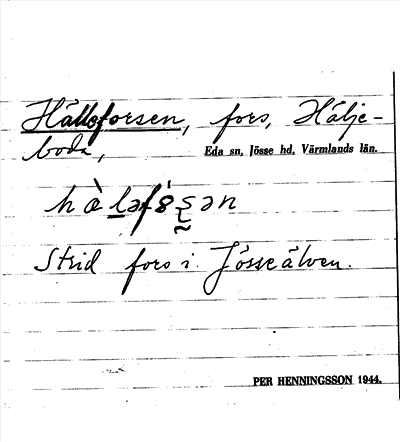 Hällsforsen, fors, Hälje-
boda, Eda sn, Jösse hd, Värmlands län.
Strid fors i Jösseälven.
PER HENNINGSSON 1944.